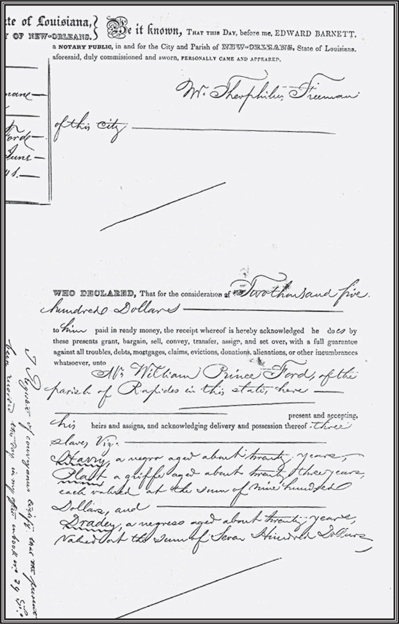 te of Louisiana,
Y OF NEW-ORLEANS.
Be it known, THAT THIS DAY, before me, EDWARD BARNETT.
a NOTARY PUBLIC, in and for the City and Parish of NEW-ORLEANS, State of Louisiana.
aforesaid, duly commissioned and sworn, PERSONALLY CAME AND APPEARED.
Mr. Theophilus Freeman
of this city
Ford
June
WHO DECLARED, That for the consideration of Two thousand five
hundred Dollars
to him paid in ready money, the receipt whereof is hereby acknowledged he does by
these presents grant, bargain, sell, convey, transfer, assign, and set over, with a full guarantee
against all troubles, debts, mortgages, claims, evictions, donations, alienations, or other incumbrances
whatsoever, unto Mr. William Prince Ford, of the
parish of Rapides in this state, here
present and accepting,
his heirs and assigns, and acknowledging delivery and possession thereof three
slaves Viz:
Harry, a negro aged about twenty years,
Platt a griffe aged about twenty three years,
each valued at the sum of nine hundred
Dollars, and
Dradey, a negress aged about twenty years,
Valued at the sum of Seven Hundred Dollars,
I Register of conveyances certify that the present